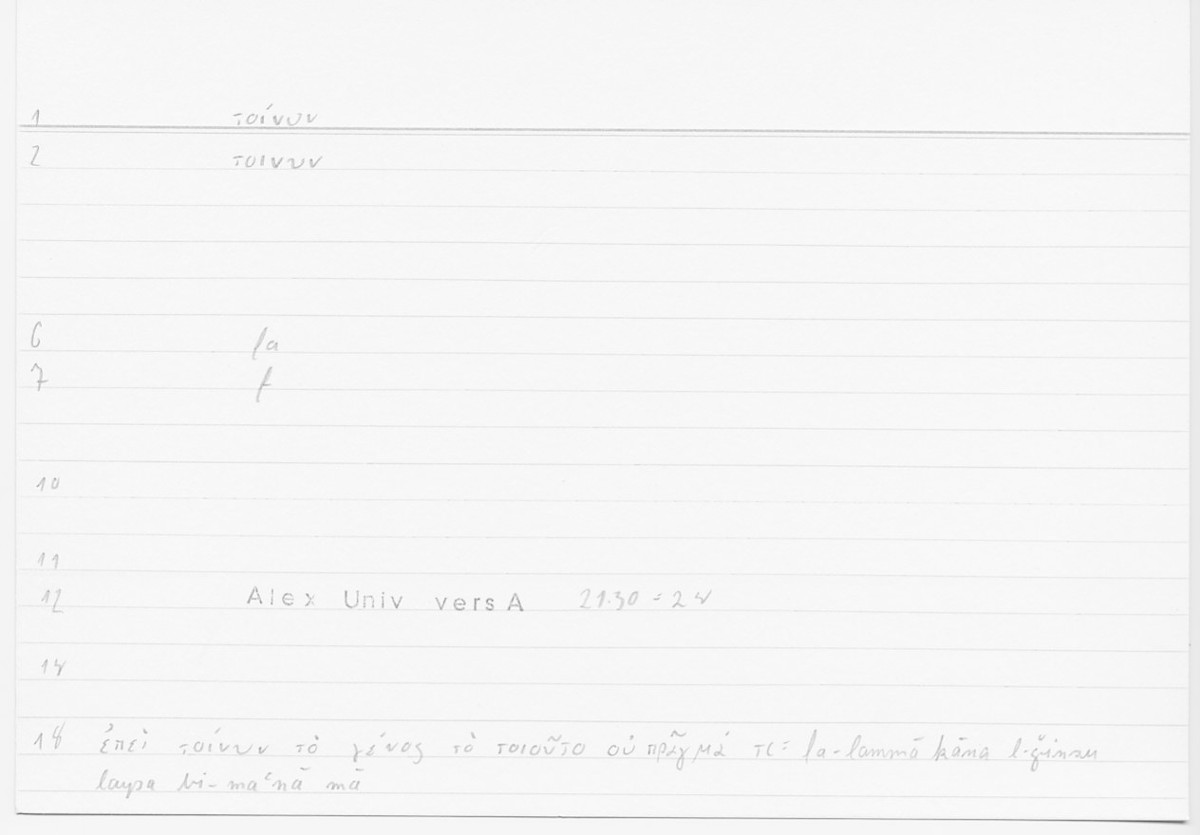 1 τοίνυν
2 τοινυν
6 fa
7 f
10
11
12 Alex Univ vers A 21.30 = 2 8
14
18 ἐπεὶ τοίνυν τὸ γένος τὸ τοιοῦτο οὐ πρᾶγμά τι = fa-lammā kāna l-ǧinsu
laysa bi-maʿnā mā